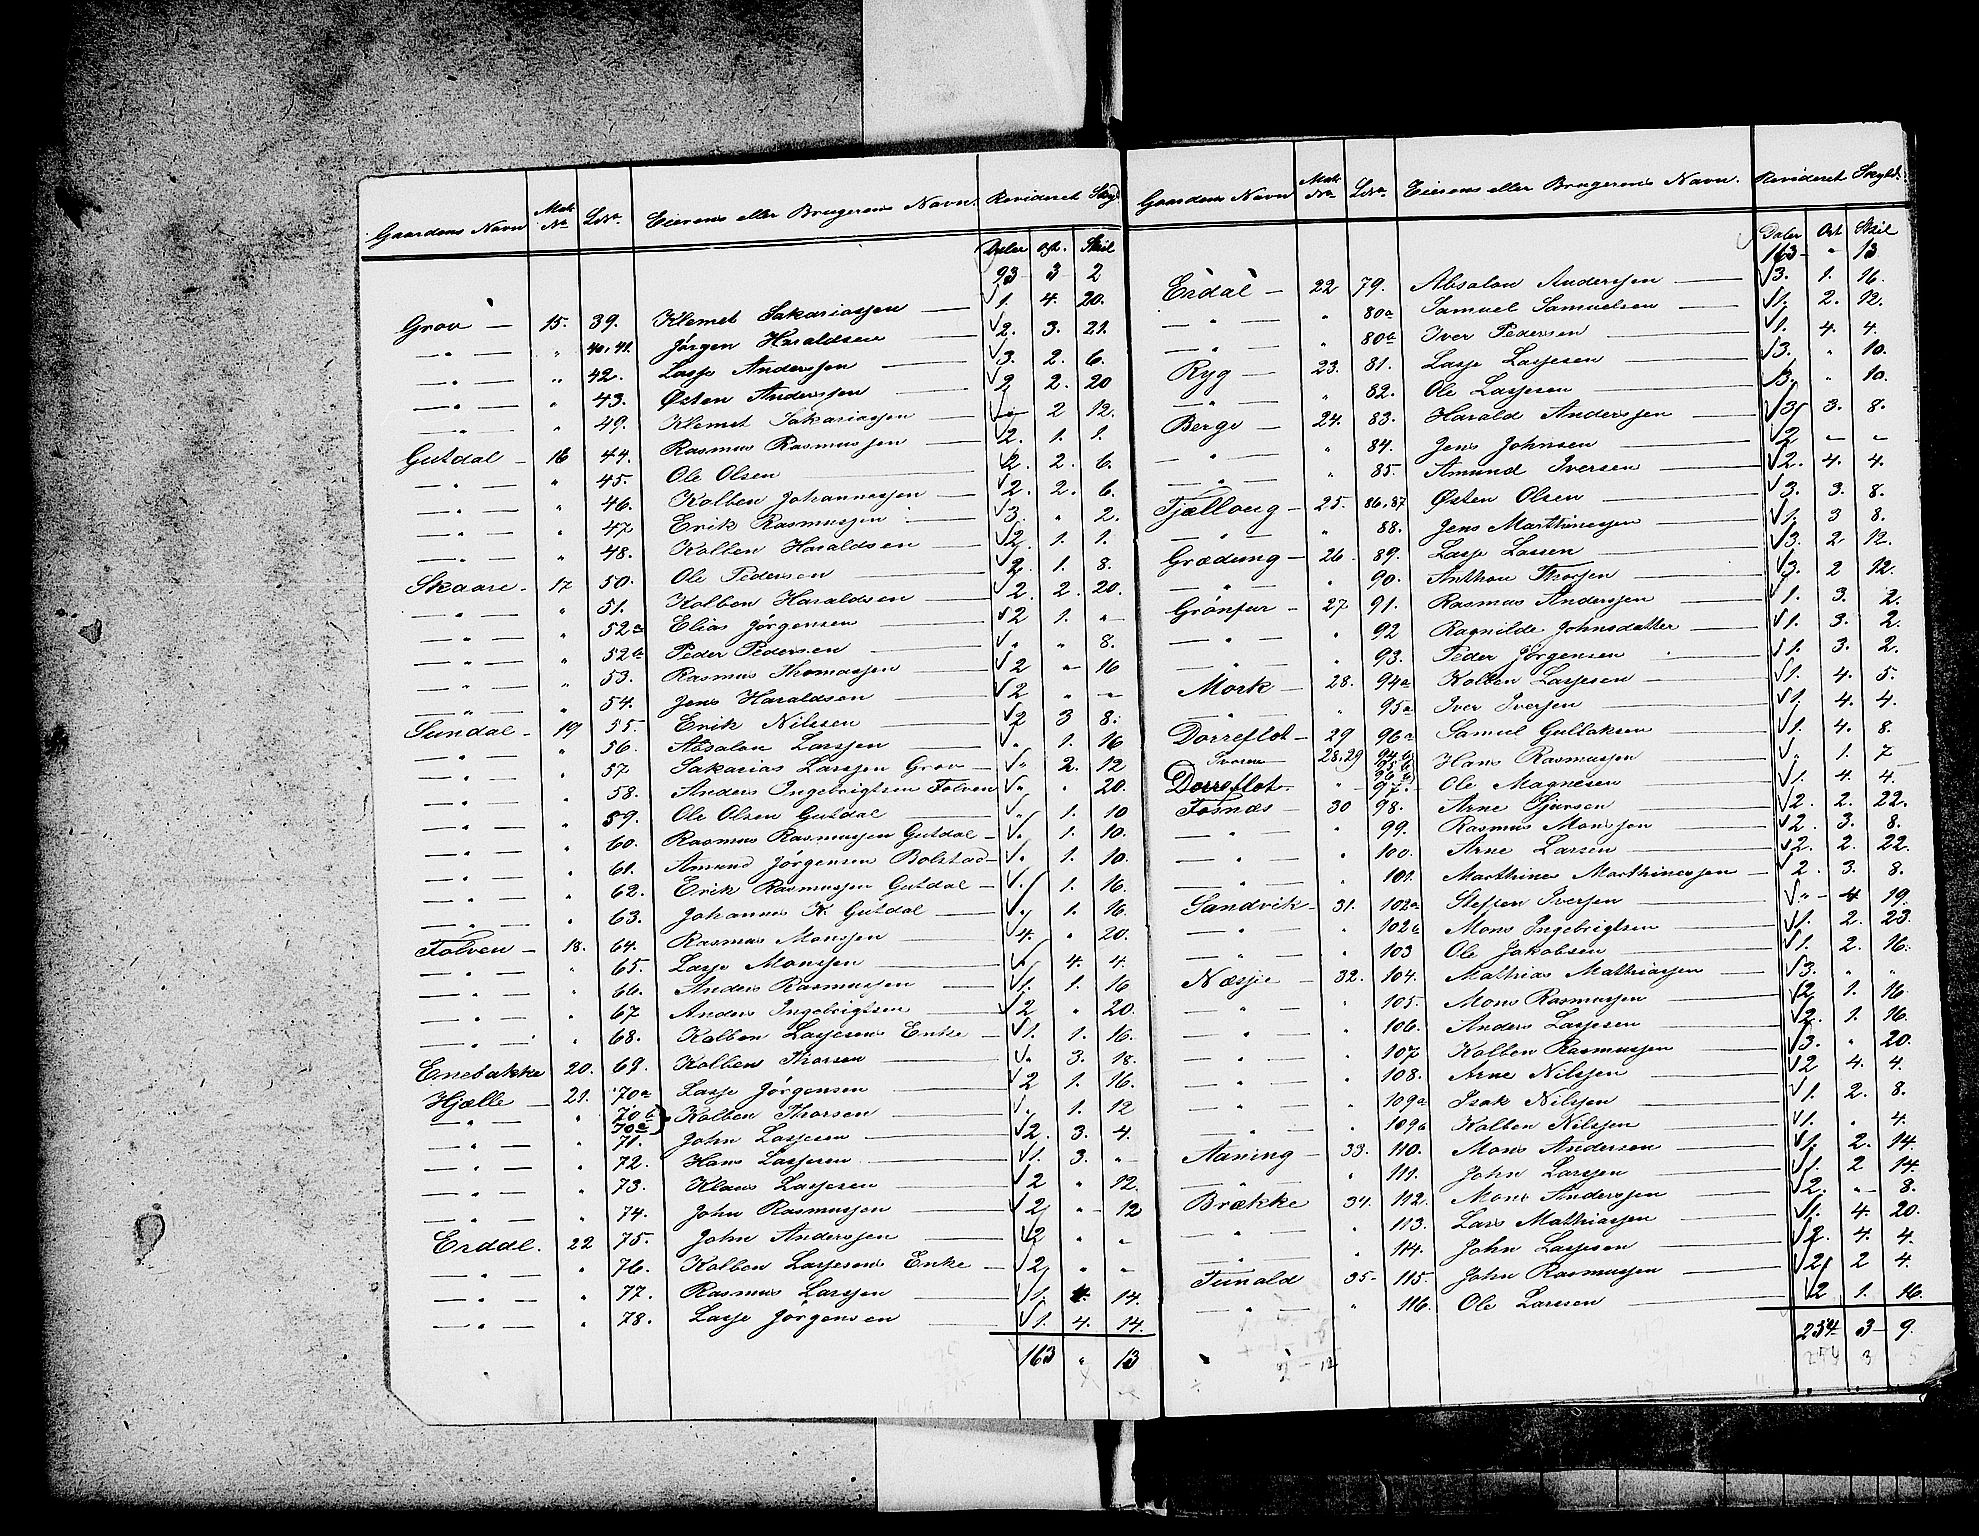 Gaardens Navn Mat. No. LNo. Eierens eller Brugerens Navn. Revideret Skyld
Daler Ort. Skil
93 3 2
Grov — 15. 39. Klemet Sakariassen — 1. 4. 20.
— " — " 40, 41. Jørgen Haraldsen — 2. 3. 21.
— " — " 42. Lasse Anderssen — 3. 2. 6.
— " — " 43. Østen Anderssen — 2 2. 20
— " — " 49. Klemet Sakariassen — " 2 12.
Gutdal — 16 44. Rasmus Rasmussen — 2. 1. 1.
— " — " 45. Ole Olsen — 2. 2. 6.
— " — " 46. Kolben Johannessen — 2. 2. 6.
— " — " 47 Erik Rasmussen — 3. " 2.
— " — " 48. Kolben Haraldsen — 2. 1. 1.
Skaare — 17 50. Ole Pedersen — 2. 1. 8.
— " — " 51. Kolben Haraldsen — 2. 2. 20.
— " — " 52a Elias Jørgensen — 2 1. "
— " — " 52b Peder Pedersen — " " 8.
— " — " 53. Rasmus Thomassen — 2 " 16
— " — " 54. Jens Haraldsen — 2 " "
Sundal — 19 55. Erik Nilssen — 2 3 8.
— " — " 56. Absalon Larssen — " 1. 16
— " — " 57 Sakarias Larssen Grov — " 2. 12
— " — " 58. Anders Ingebrigtsen Folven " " 20.
— " — " 59. Ole Olsen Gutdal — " 1. 10
— " — " 60. Rasmus Rasmussen Gutdal — " 1. 10.
— " — " 61. Amund Jørgensen Bolstad — " 1. 10.
— " — " 62. Erik Rasmussen Gutdal — " 1. 16.
— " — " 63. Johannes K. Gutdal — " 1. 16.
Folven — 18. 64. Rasmus Monssen — 4. " 20.
— " — " 65. Lasse Monssen — " 4. 4.
— " — " 66. Anders Rasmussen — 1. 1. 16
— " — " 67 Anders Ingebrigtsen — 2 " 20.
— " — " 68. Kolben Lassesens Enke — 1. 1. 16.
Enebakke 20. 69. Kolben Thorsen — " 3. 18.
Hjelle — 21. 70a Lasse Jørgensen — 2 1. 16.
— " — " 70b 70c } Kolben Thorsen — " 1. 12
— " — " 71. John Lassesen — 2. 3. 4.
— " — " 72. Hans Lassesen — 1. 3. "
— " — " 73. Klaus Lassesen — 2 " 12.
— " — " 74. John Rasmussen — 2 " 12
Erdal. 22 75. John Anderssen — 2 " "
— " — " 76. Kolben Lassesens Enke — 2 " "
— " — " 77. Rasmus Larssen — 1. 4. 14.
— " — " 78. Lasse Jørgensen — 1. 4. 14.
163 " 13
Gaardens Navn Mat. No. LNo. Eierens eller Brugerens Navn. Revideret Skyld.
Daler Ort Skil
163 " 13
Erdal — 22 79. Absalon Anderssen — 3. 1. 16.
— " — " 80a Samuel Samuelsen — 1. 2. 12.
— " — " 80b Iver Pedersen — 1. 4. 4.
Ryg — 23. 81. Lasse Lassesen — 3. " 10.
— " — " 82. Ole Lassesen — 3. " 10.
Berge — 24. 83. Harald Anderssen — 3 3. 8.
— " — " 84. Jens Johnsen — 2 — —
— " — " 85. Amund Iversen — 2. 4. 4.
Fjelloug — 25. 86, 87 Østen Olsen — 3. 3. 8.
— " — " 88. Jens Marthinessen — 1. 3 8.
Grædung — 26 89. Lasse Larsen — 3. 2 12.
— " — " 90. Anthon Thorsen — 3. 2 12.
Grønfur — 27 91. Rasmus Anderssen — 1. 3. 2.
— " — " 92 Ragnilde Johnsdatter — 1. 3. 2.
— " — " 93. Peder Jørgensen — 1. 3. 2.
Mork — 28. 94a Kolben Lassesen — 1. 4. 5.
— " — " 95a Iver Iversen — 1. 4. 4.
Dorreflot — 29 96a Samuel Gullaksen — 1. 4. 8.
28.29 94b 95b 96b Hans Rasmussen — " 1. 7
Dorreflot. — " 97. Ole Magnesen — 1. 4. 4.
Fosnæs — 30 98. Arne Sjursen — 2. 2. 22.
— " — " 99. Rasmus Monssen — 2. 3. 8.
— " — " 100. Arne Larsen — 2. 2. 22.
— " — " 101. Marthines Marthinessen — 2. 3. 8.
Sandvik — 31. 102a Steffen Iversen — " 4 19.
— " — " 102b Mons Ingebrigtsen — 1. 2. 23.
— " — " 103 Ole Jakobsen — 1. 2. 16.
Næsje — 32. 104. Mathias Mathiassen — 3. " "
— " — " 105. Mons Rasmussen — 2 1. 16
" " 106. Anders Lassesen — 2. 1. 16.
" " 107 Kolben Rasmussen — 3. " 20.
" " 108. Arne Nilssen — 2 4. 4.
— " — " 109a Isak Nilssen — 1. 2. 8.
— " — " 109b Kolben Nilssen — 1. " 4.
Aaning — 33. 110. Mons Andersen — 1. 2. 14.
— " — " 111. John Larssen — 1. 2 14.
Brække 34. 112. Mons Anderssen — 2. " 8.
— " — " 113. Lars Mathiassen — 1. 4. 20.
— " — " 114. John Lassesen — 2. 4. 4.
Tunald 35 115. John Rasmussen — 2 2 4.
— " — " 116. Ole Larssen — 2 1. 16.
234 3 9.